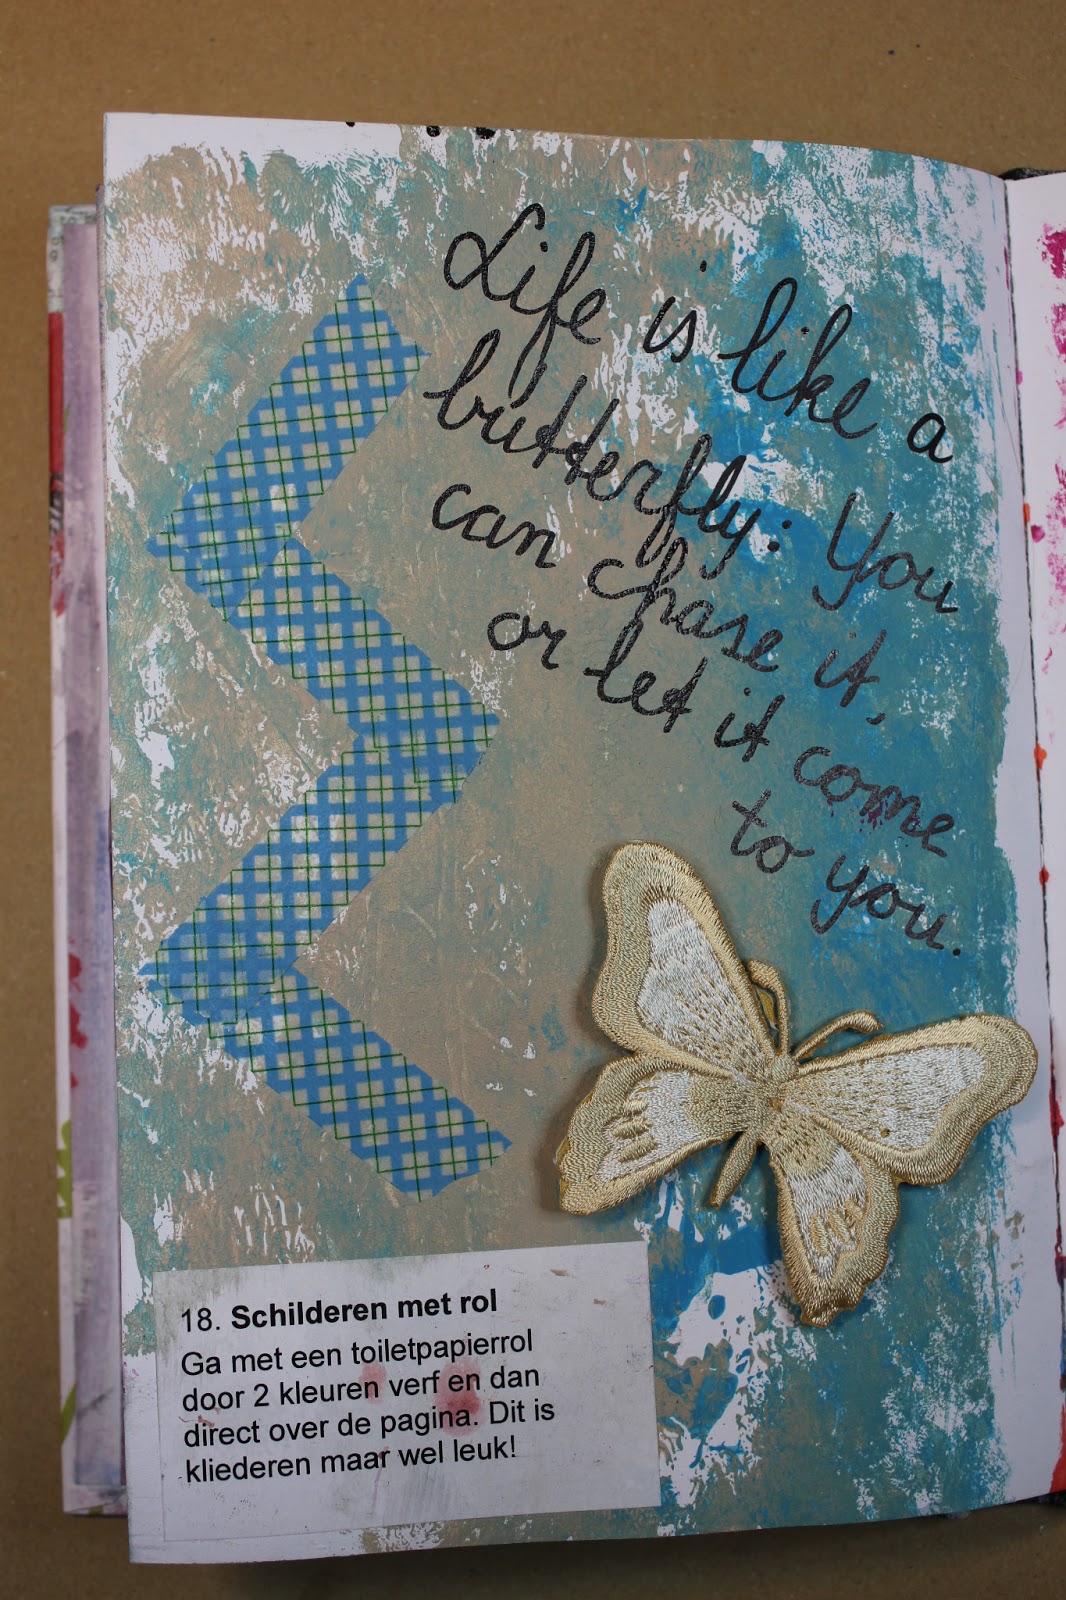 Life is like a
butterfly: You
can chase it,
or let it come
to you.
18. Schilderen met rol
Ga met een toiletpapierrol
door 2 kleuren verf en dan
direct over de pagina. Dit is
kliederen maar wel leuk!